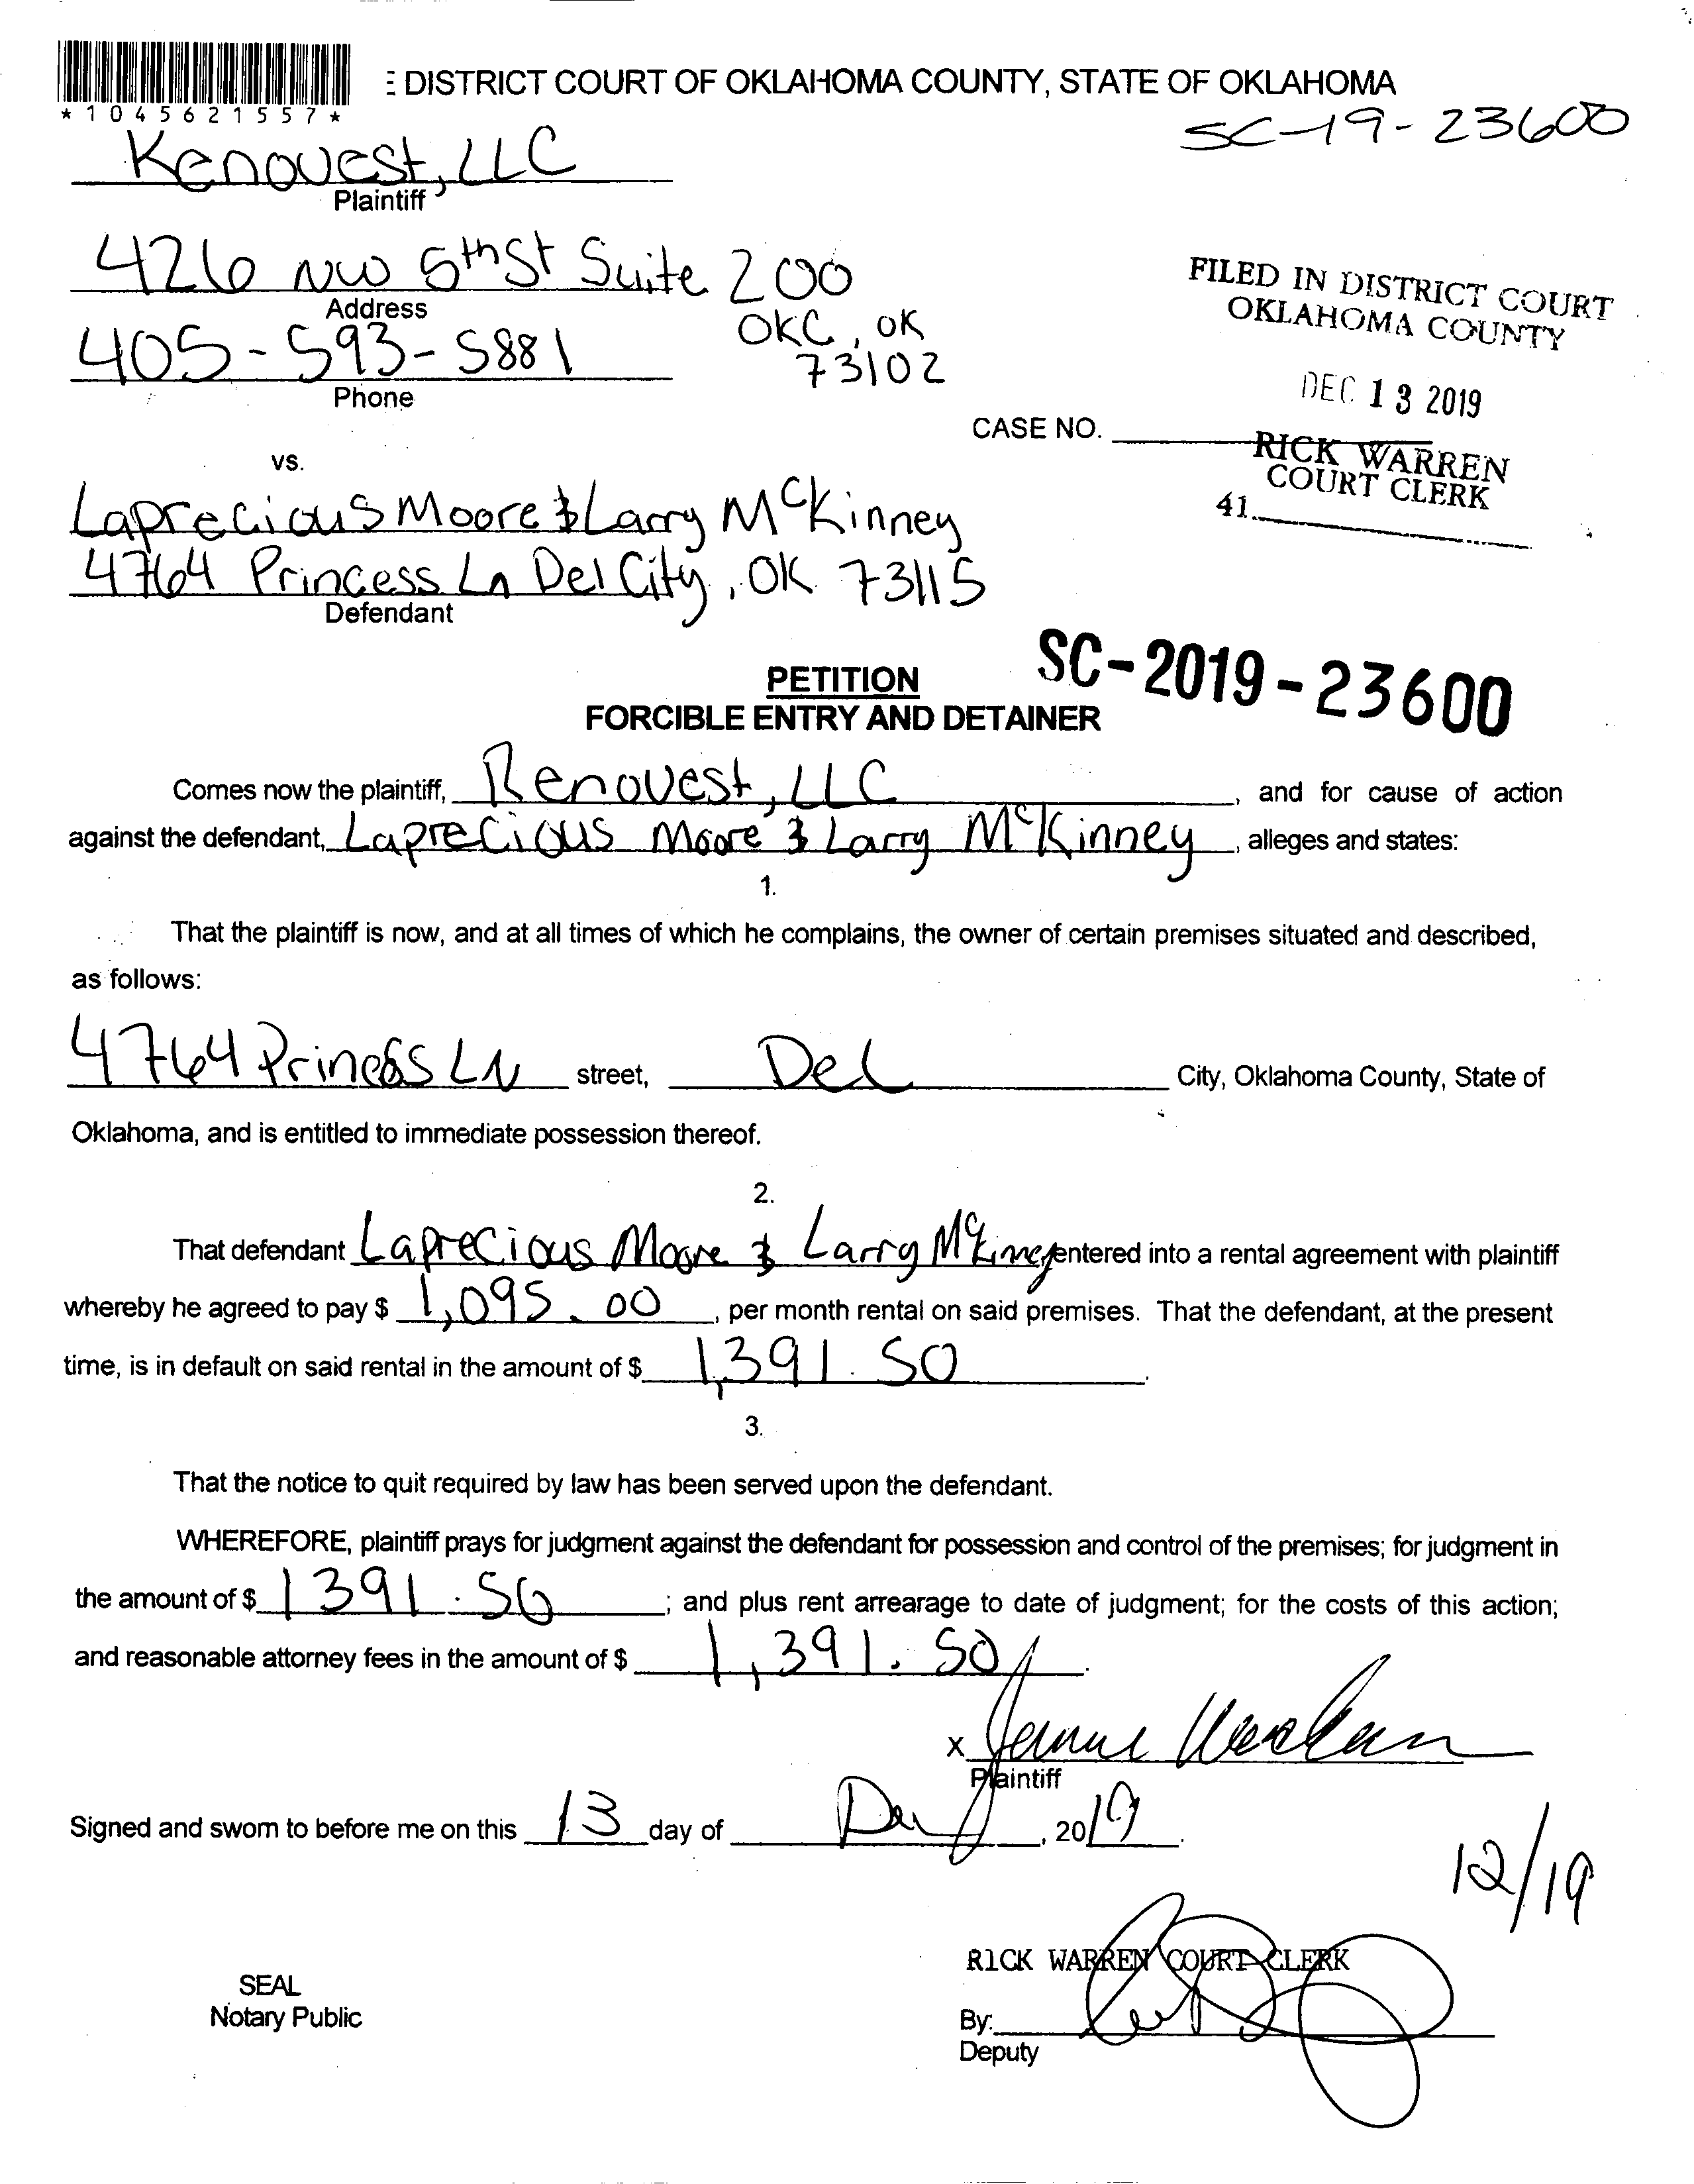 DISTRICT COURT OF OKLAHOMA COUNTY, STATE OF OKLAHOMA
*1045621557*
SC-19-23600
Renovest, LLC
Plaintiff
426 NW 5th St Suite 200
Address
OKC, OK
73102
405-593-5881
Phone
FILED IN DISTRICT COURT
OKLAHOMA COUNTY
DEC 13 2019
RICK WARREN
COURT CLERK
41
CASE NO.
vs.
Laprecious Moore & Larry McKinney
4764 Princess Ln Del City, OK 73115
Defendant
SC-2019-23600
PETITION
FORCIBLE ENTRY AND DETAINER
Comes now the plaintiff, Renovest, LLC, and for cause of action
against the defendant, Laprecious Moore & Larry McKinney, alleges and states:
1.
That the plaintiff is now, and at all times of which he complains, the owner of certain premises situated and described,
as follows:
4764 Princess LN street, Del City, Oklahoma County, State of
Oklahoma, and is entitled to immediate possession thereof.
2.
That defendant Laprecious Moore & Larry McKinney entered into a rental agreement with plaintiff
whereby he agreed to pay $ 1,095.00, per month rental on said premises. That the defendant, at the present
time, is in default on said rental in the amount of $ 1,391.50.
3.
That the notice to quit required by law has been served upon the defendant.
WHEREFORE, plaintiff prays for judgment against the defendant for possession and control of the premises; for judgment in
the amount of $ 1391.50; and plus rent arrearage to date of judgment; for the costs of this action;
and reasonable attorney fees in the amount of $ 1,391.50.
X
Plaintiff
Signed and sworn to before me on this 13 day of Dec, 2019.
12/19
RICK WARREN COURT CLERK
SEAL
Notary Public
By:
Deputy